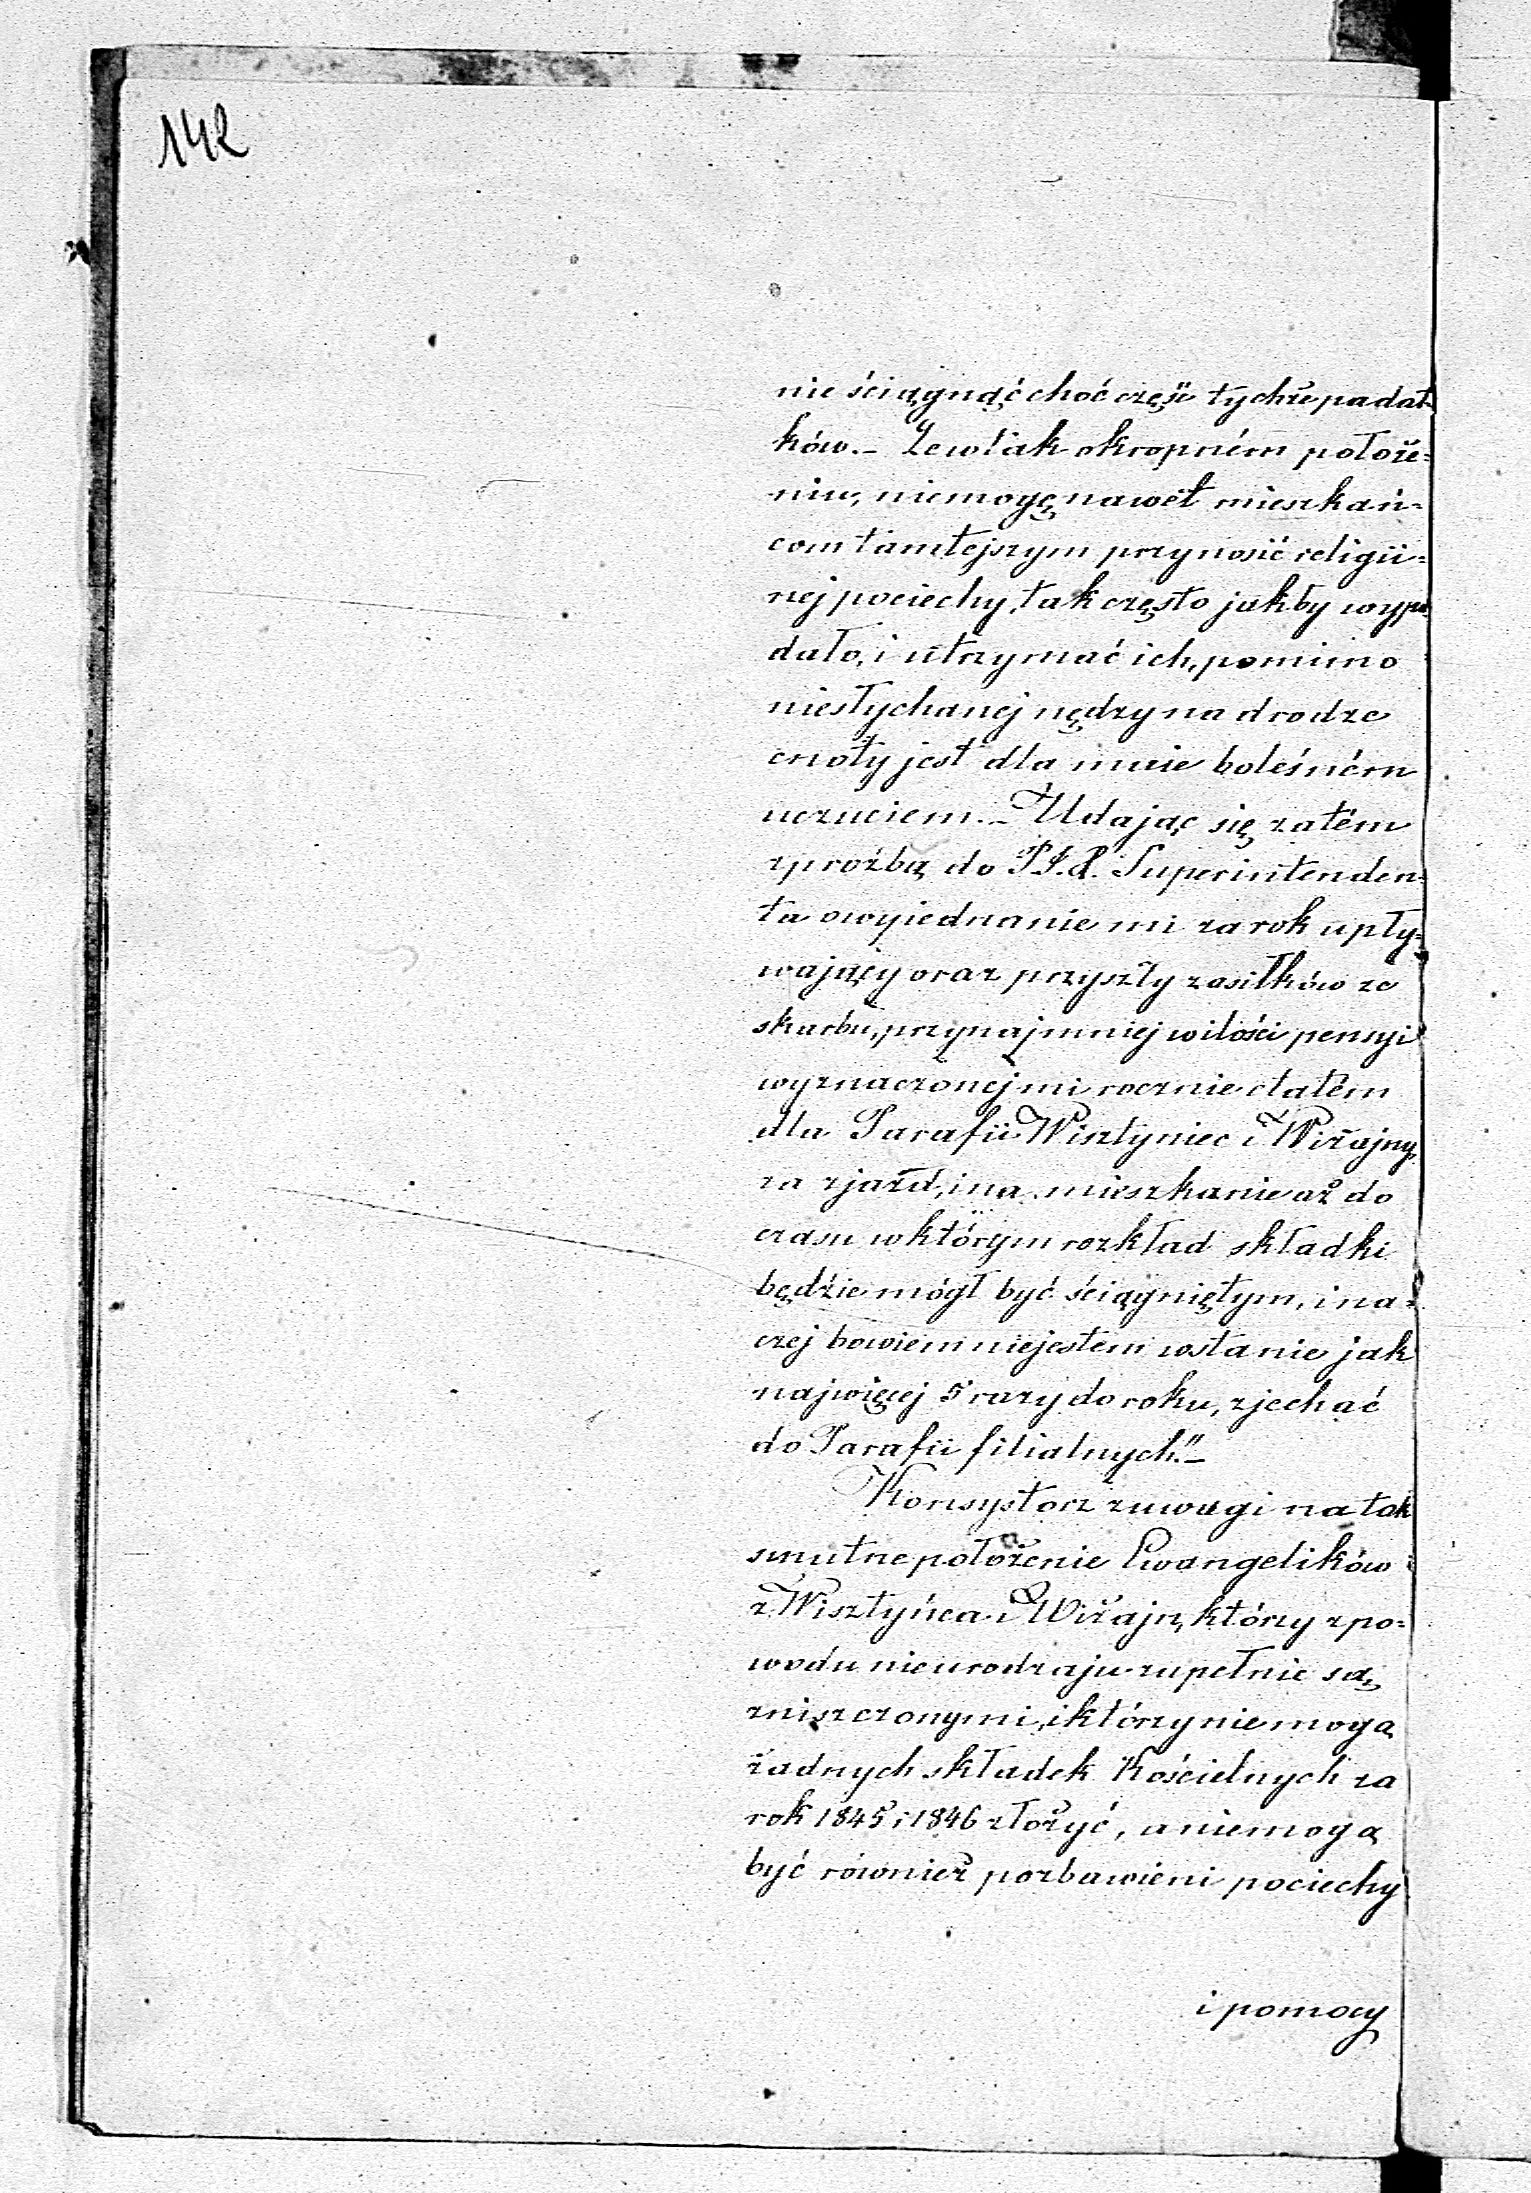 142
nie ściągnąć choć część tychże podat-
ków. – Że w tak okropném położe=
niu, niemogę nawet mieszkań=
com tamtejszym przynosić religii=
nej pociechy, tak często jakby wypa
dało, i utrzymać ich, pomimo
niesłychanej nędzy na drodze
cnoty jest dla mnie boleśném
uczuciem. – Udając się zatém
z proźbą do Superintenden=
ta o wyjednanie mi za rok upły=
wający oraz przyszły zasiłków ze
skarbu, przynajmniej wilości pensyi
wyznaczonej mi rocznie etatém
dla Parafii Wisztyniec i Wiżajny,
za zjazd, i na mieszkanie aż do
czasu w którym rozkład składki
będzie mógł być ściągniętym, ina=
czej bowiem niejestem wstanie jak
najwięcej 5 razy do roku, zjechać
do Parafii filialnych." –
Konsystorz z uwagi na tak
smutne położenie Ewangelików
z Wisztyńca i Wiżajn, którzy z po=
wodu nieurodzaju zupełnie są
zniszczonymi, i którzy niemogą
żadnych składek Kościelnych za
rok 1845 i 1846 złożyć, a niemogą
być również pozbawieni pociechy
i pomocy